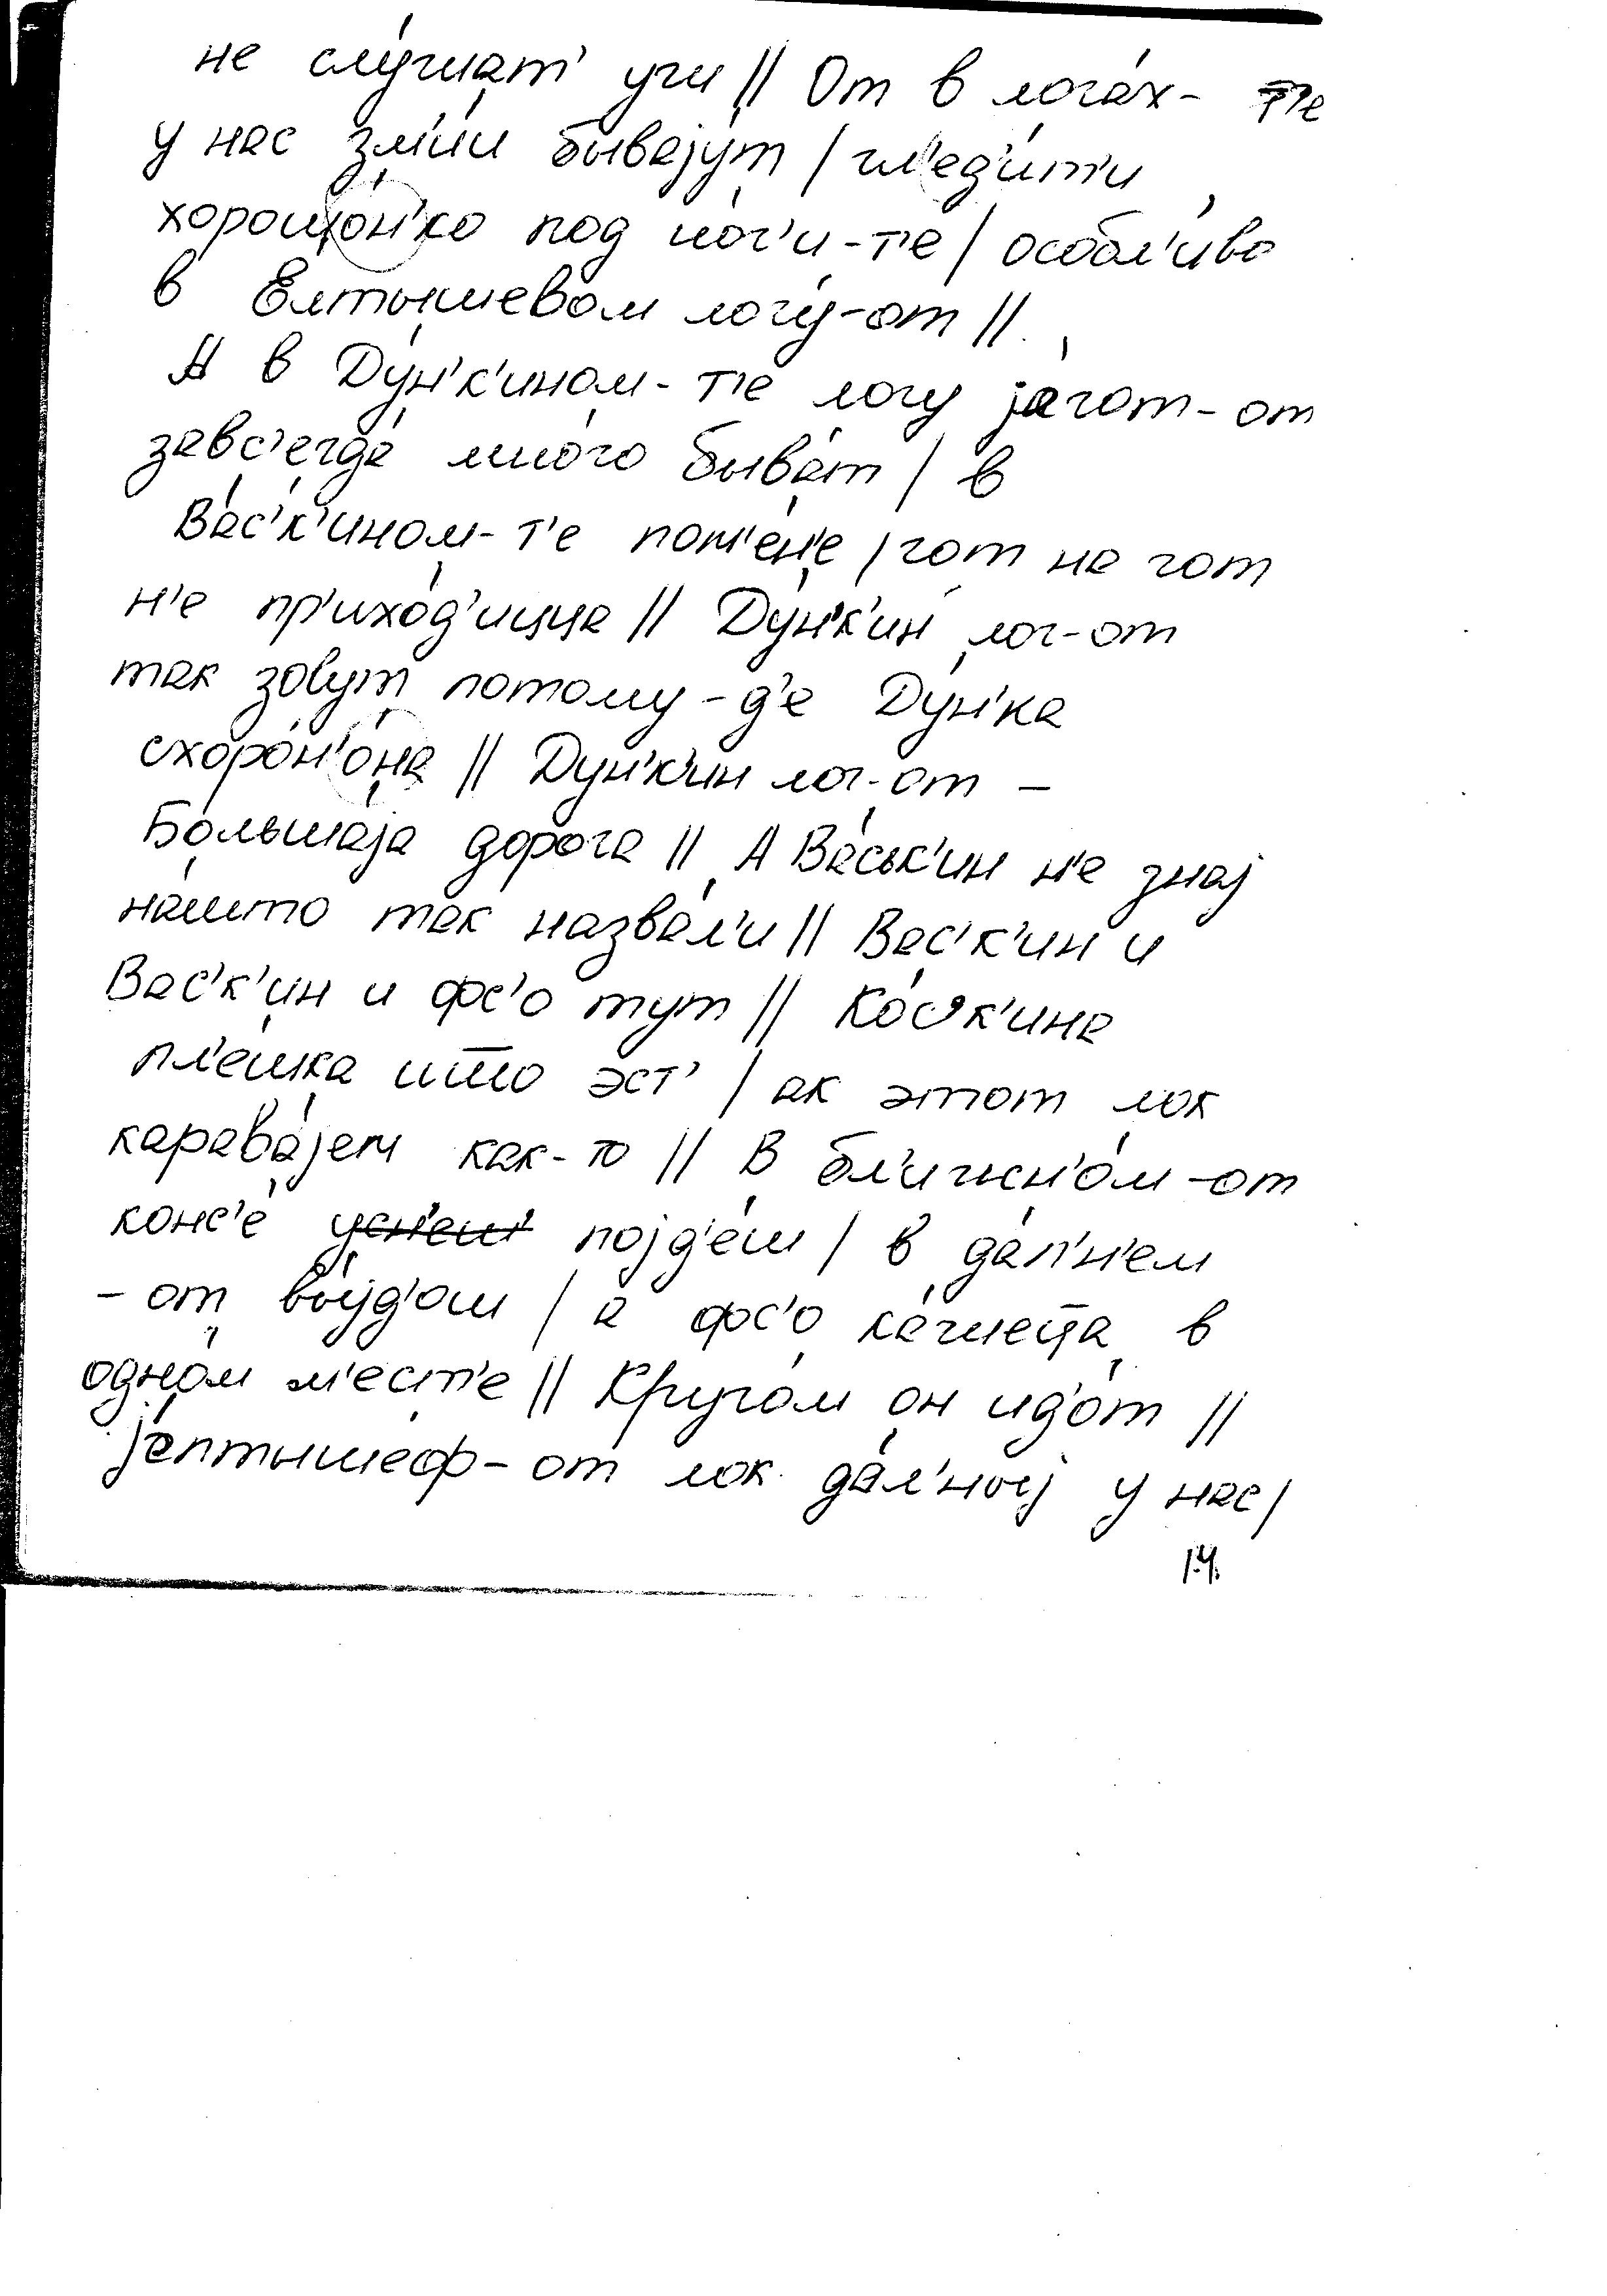 не слу́шат' уги || От в лога́х- т'е
у нас зм'и́и быва́јут / гл'ед'и́т'и
хорошо́н'ко под но́г'и-т'е / особл'и́во
в Елты́шевом логу́-от ||
А в Ду́н'к'ином- т'е логу ја́гот-от
завс'егда́ мно́го быва́т / в
Ва́с'к'ином- т'е пом'е́н'е / гот на гот
н'е пр'ихо́д'ицца || Ду́н'к'ин лог-от
так зову́т потому́ -д'е Ду́н'ка
схоро́н'о́на || Ду́н'к'ин лог-от –
Больша́ја доро́га || А Ва́ськ'ин н'е знај
нашто так назва́л'и || Вас'к'ин и
Вас'к'ин и фс'о тут || Ко́с'к'ина
пл'е́шка што эст' / ак этот лок
карава́јем как-то || В бл'ижн'о́м -от
конс'е́ појд'е́ш / в да́л'н'ем
– от вы́јд'ош / а фс'о ка́жеца в
одно́м м'е́ст'е || Круго́м он ид'о́т ||
јелты́шеф- от лок да́л'ныј у нас /
14.